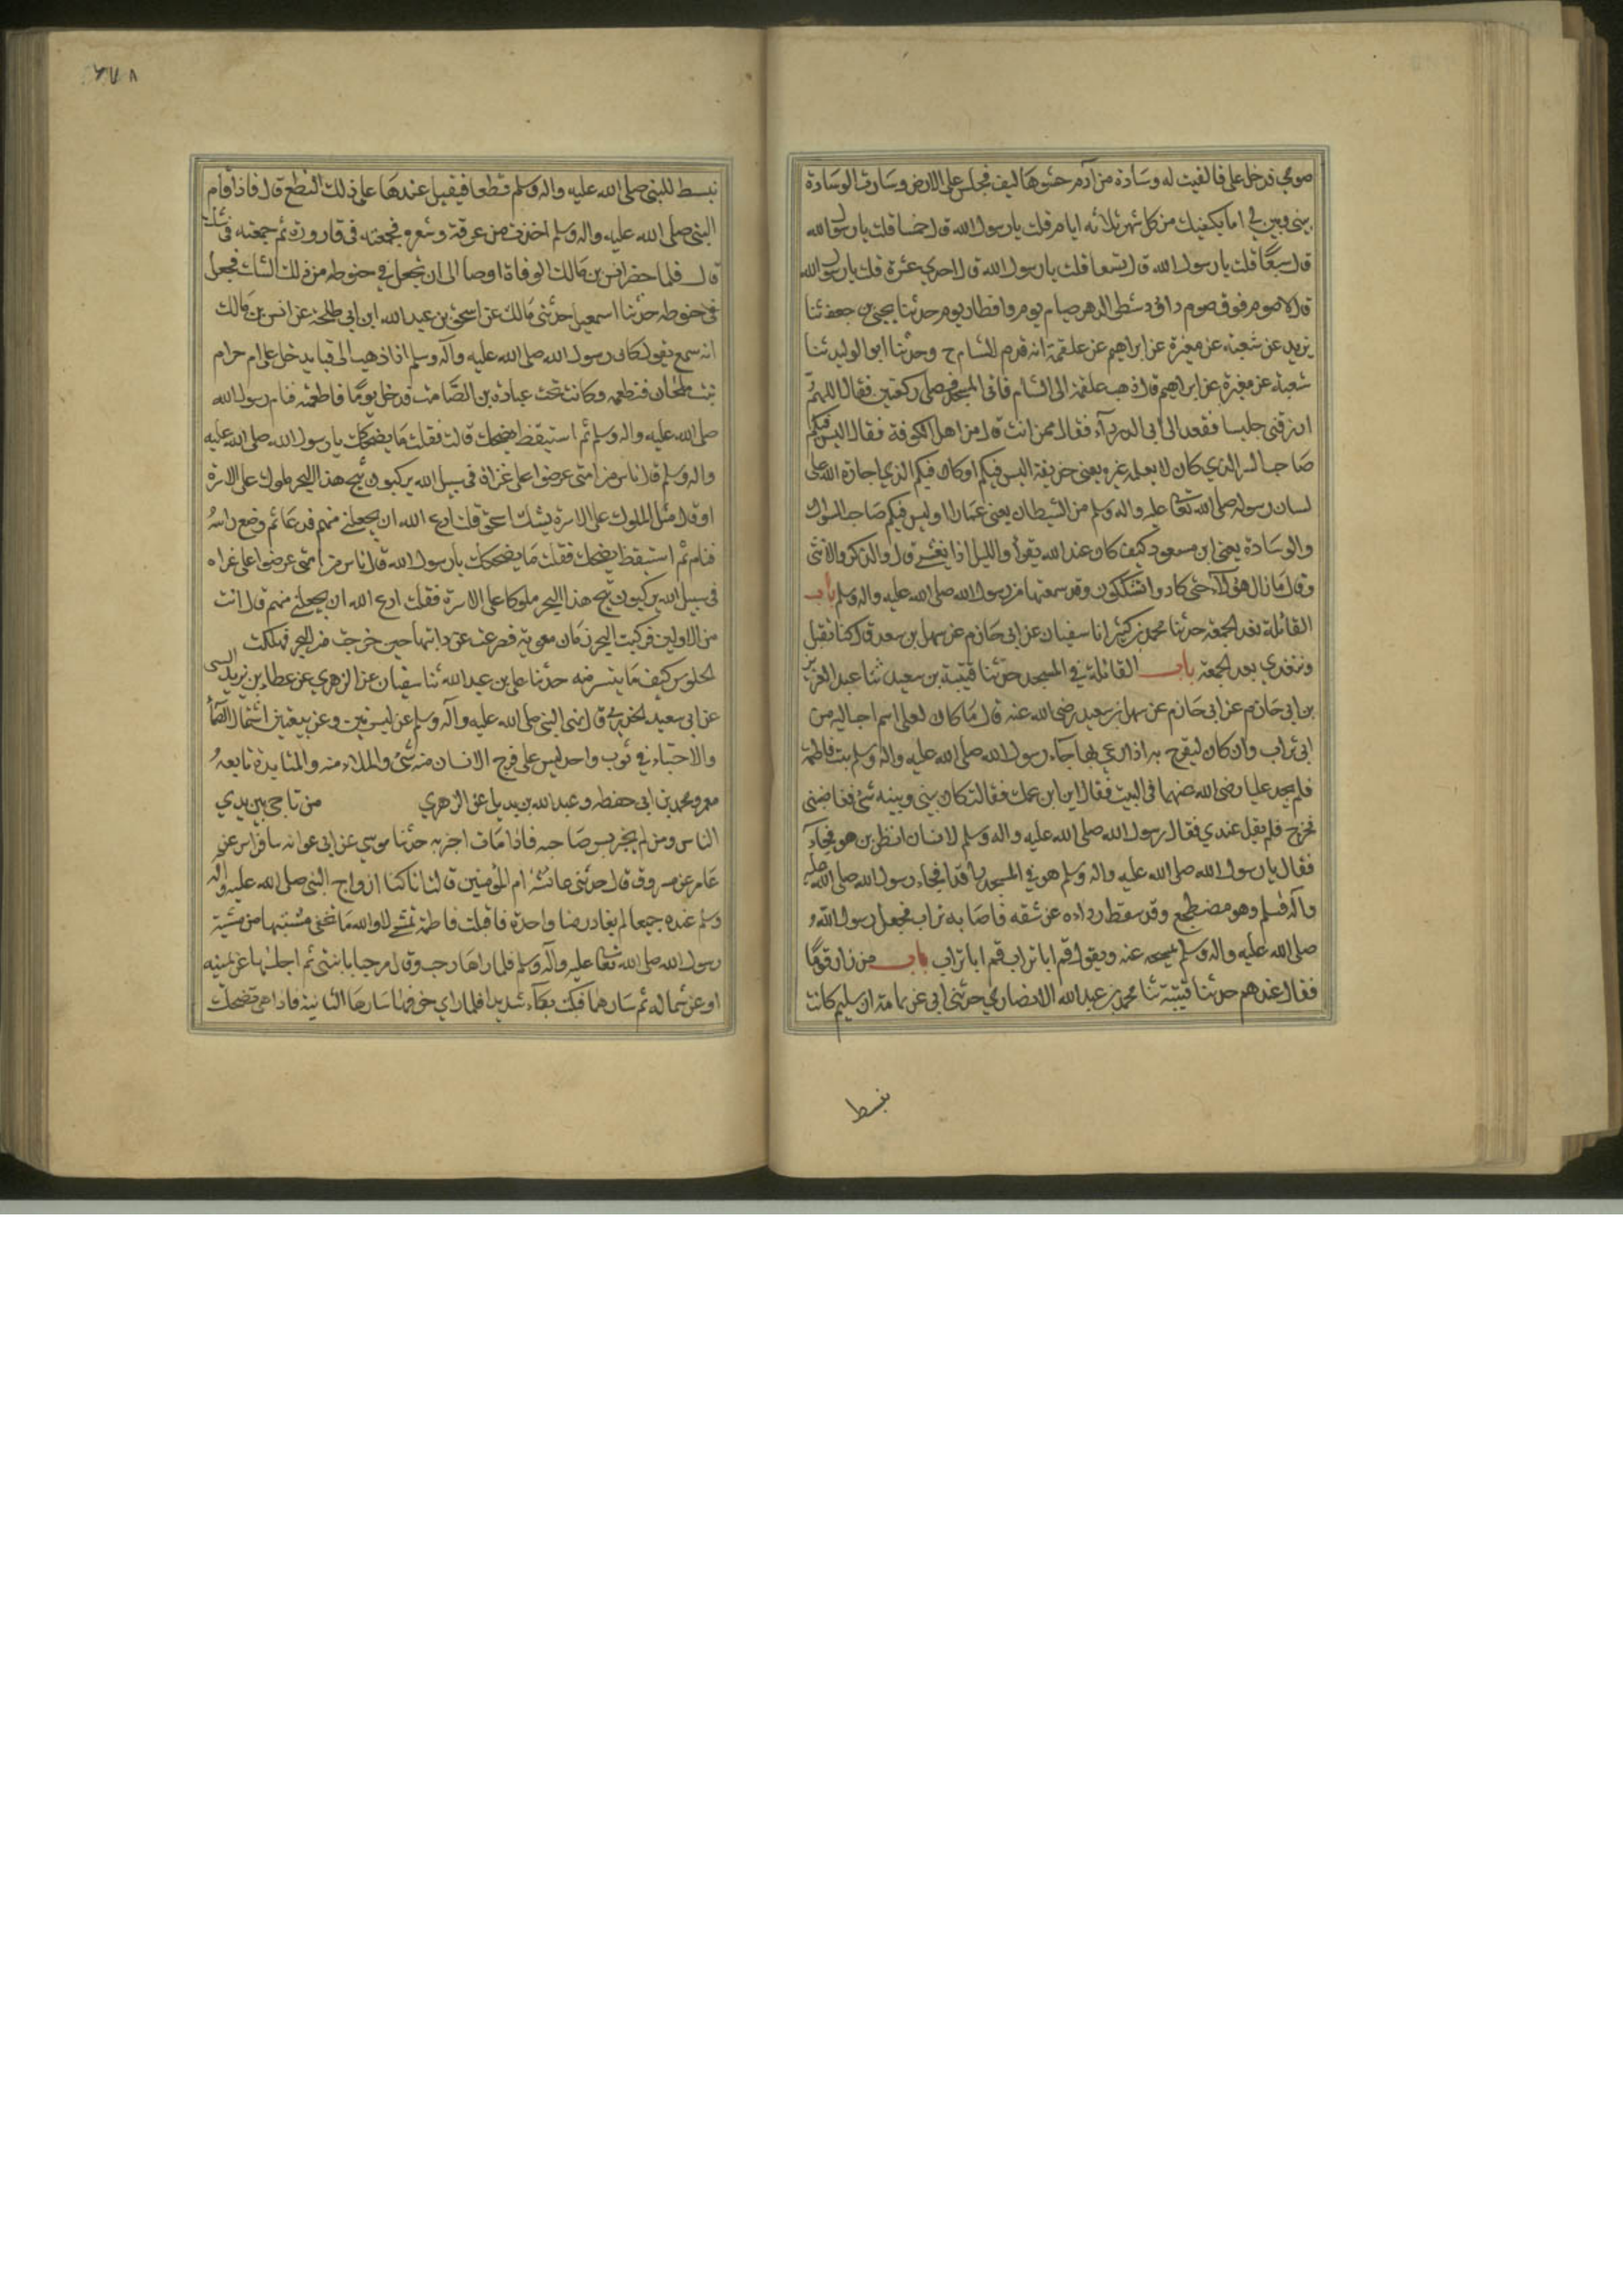 صومي فدخل على فالقيت له وسادة من آدم حشوها ليف فجلس على الارض وصارت الوسادة
بيني وبينه اما يكفيك من كل شهر ثلاثه ايام قلت يا رسول الله قال خمسا قلت يا رسول الله
قال سبعا قلت يا رسول الله قال تسعا قلت يا رسول الله قال احدي عشرة قلت يا رسول الله
قال لا صوم فوق صوم داود شطر الدهر صيام يوم وافطار يوم حدثنا يحيى بن جعفر ثنا
يزيد عن شعبة عن مغيرة عن ابراهيم عن علقمة انه قدم الشام ح وحدثنا ابو الوليد ثنا
شعبة عن مغيرة عن ابراهيم قال ذهب علقمة الى الشام فاتى المسجد فصلى ركعتين فقال اللهم
ارزقني جليسا فقعد الى ابى الدرداء فقال ممن انت قال من اهل الكوفة فقال اليس فيكم
صاحب السر الذي كان لا يعلمه غيره يعني حذيفة اليس فيكم او كان فيكم الذي اجاره الله على
لسان رسوله صلى الله تعالى عليه واله وسلم من الشيطان يعنى عمارا اوليس فيكم صاحب السواك
والوسادة يعنى ابن مسعود كيف كان عبد الله يقرأ والليل اذا يغشى قال والذكر والانثى
وقال ما زال هؤلاء حتى كادوا تشككون وقد سمعتها من رسول الله صلى الله عليه واله وسلم باب
القائلة بعد الجمعة حدثنا محمد بن كثير انا سفيان عن ابى حازم عن سهل بن سعد قال كنا نقيل
ونتغدي بعد الجمعة باب القائلة في المسجد حدثنا قتيبة بن سعيد ثنا عبد العزيز
بن ابى حازم عن ابى حازم عن سهل بن سعد رضى الله عنه قال ما كان لعلى اسم احب اليه من
ابى تراب وان كان ليفرح به اذا دعي بها جاء رسول الله صلى الله عليه واله وسلم بيت فاطمة
فلم يجد عليا رضى الله عنهما فى البيت فقال اين ابن عمك فقالت كان بيني وبينه شئ فغاضبنى
فخرج فلم يقل عندي فقال رسول الله صلى الله عليه واله وسلم لانسان انظر ين هو فجاء
فقال يا رسول الله صلى الله عليه واله وسلم هو في المسجد راقد فجاء رسول الله صلى الله عليه
وآله وسلم وهو مضطجع وقد سقط رداءه عن شقه فاصابه تراب فجعل رسول الله
صلى الله عليه واله وسلم يمسحه عنه ويقول قم ابا تراب قم ابا تراب باب من زار قوما
فقال عندهم حدثنا قتيبة ثنا محمد بن عبد الله الانصاري حدثنى ابى عن ثمامة ان ام سليم كانت
تبسط
تبسط للنبى صلى الله عليه واله وسلم نطعا فيقيل عندها على ذلك النطع قال فاذا قام
النبى صلى الله عليه واله وسلم اخذت من عرقه وشعره فجمعته فى قارورة ثم جمعته فى سك
قال فلما حضر انس بن مالك الوفاة اوصا الى ان يجعل في حنوطه من ذلك السك فجعل
فى حنوطه حدثنا اسمعيل حدثنى مالك عن اسحق بن عبد الله ابن ابى طلحة عن انس بن مالك
انه سمع يقول كان رسول الله صلى الله عليه وآله وسلم اذا ذهب الى قبا يدخل على ام حرام
بنت ملحان فتطعمه وكانت تحت عبادة بن الصامت فدخل يوما فاطعمته فنام رسول الله
صلى الله عليه واله وسلم ثم استيقظ يضحك قالت فقلت ما يضحكك يا رسول الله صلى الله عليه
واله وسلم قال ناس من امتى عرضوا على غزاة فى سبيل الله يركبون ثبج هذا البحر ملوك على الاسرة
او قال مثل الملوك على الاسرة يشك اسحق قلت ادع الله ان يجعلنى منهم فدعا ثم وضع راسه
فنام ثم استيقظ يضحك فقلت ما يضحكك يا رسول الله قال ناس من امتى عرضوا على غزاه
فى سبيل الله يركبون ثبج هذا البحر ملوكا على الاسرة فقلت ادع الله ان يجعلنى منهم قال انت
من الاولين فركبت البحر زمان معوية فصرعت عن دابتها حين خرجت من البحر فهلكت
الجلوس كيف ما يتسر منه حدثنا على بن عبد الله ثنا سفيان عن الزهري عن عطاء بن يزيد الليثى
عن ابى سعيد الخدري قال نهى النبى صلى الله عليه وآله وسلم عن لبستين وعن بيعتين اشتمال الصماء
والاحتباء في ثوب واحد ليس على فرج الانسان منه شئ والملامسة والمنابذة تابعه
معمر ومحمد بن ابى حفصه وعبد الله بن بديل عن الزهري من ناجى بين يدي
الناس ومن لم يخبر بسر صاحبه فاذا مات اخبر به حدثنا موسي عن ابى عوانه نا فراس عن
عامر عن مسروق قال حدثتنى عائشة ام المؤمنين قالت انا كنا ازواج النبى صلى الله عليه واله
وسلم عنده جميعا لم يغادر منا واحدة فاقبلت فاطمة تمشى لا والله ما تخفى مشيتها من مشية
رسول الله صلى الله تعالى عليه وآله وسلم فلما راها رحب وقال مرحبا بابنتى ثم اجلسها عن يمينه
او عن شماله ثم سارها فبكت بكاء شديدا فلما راي حزنها سارها الثانية فاذا هى تضحك